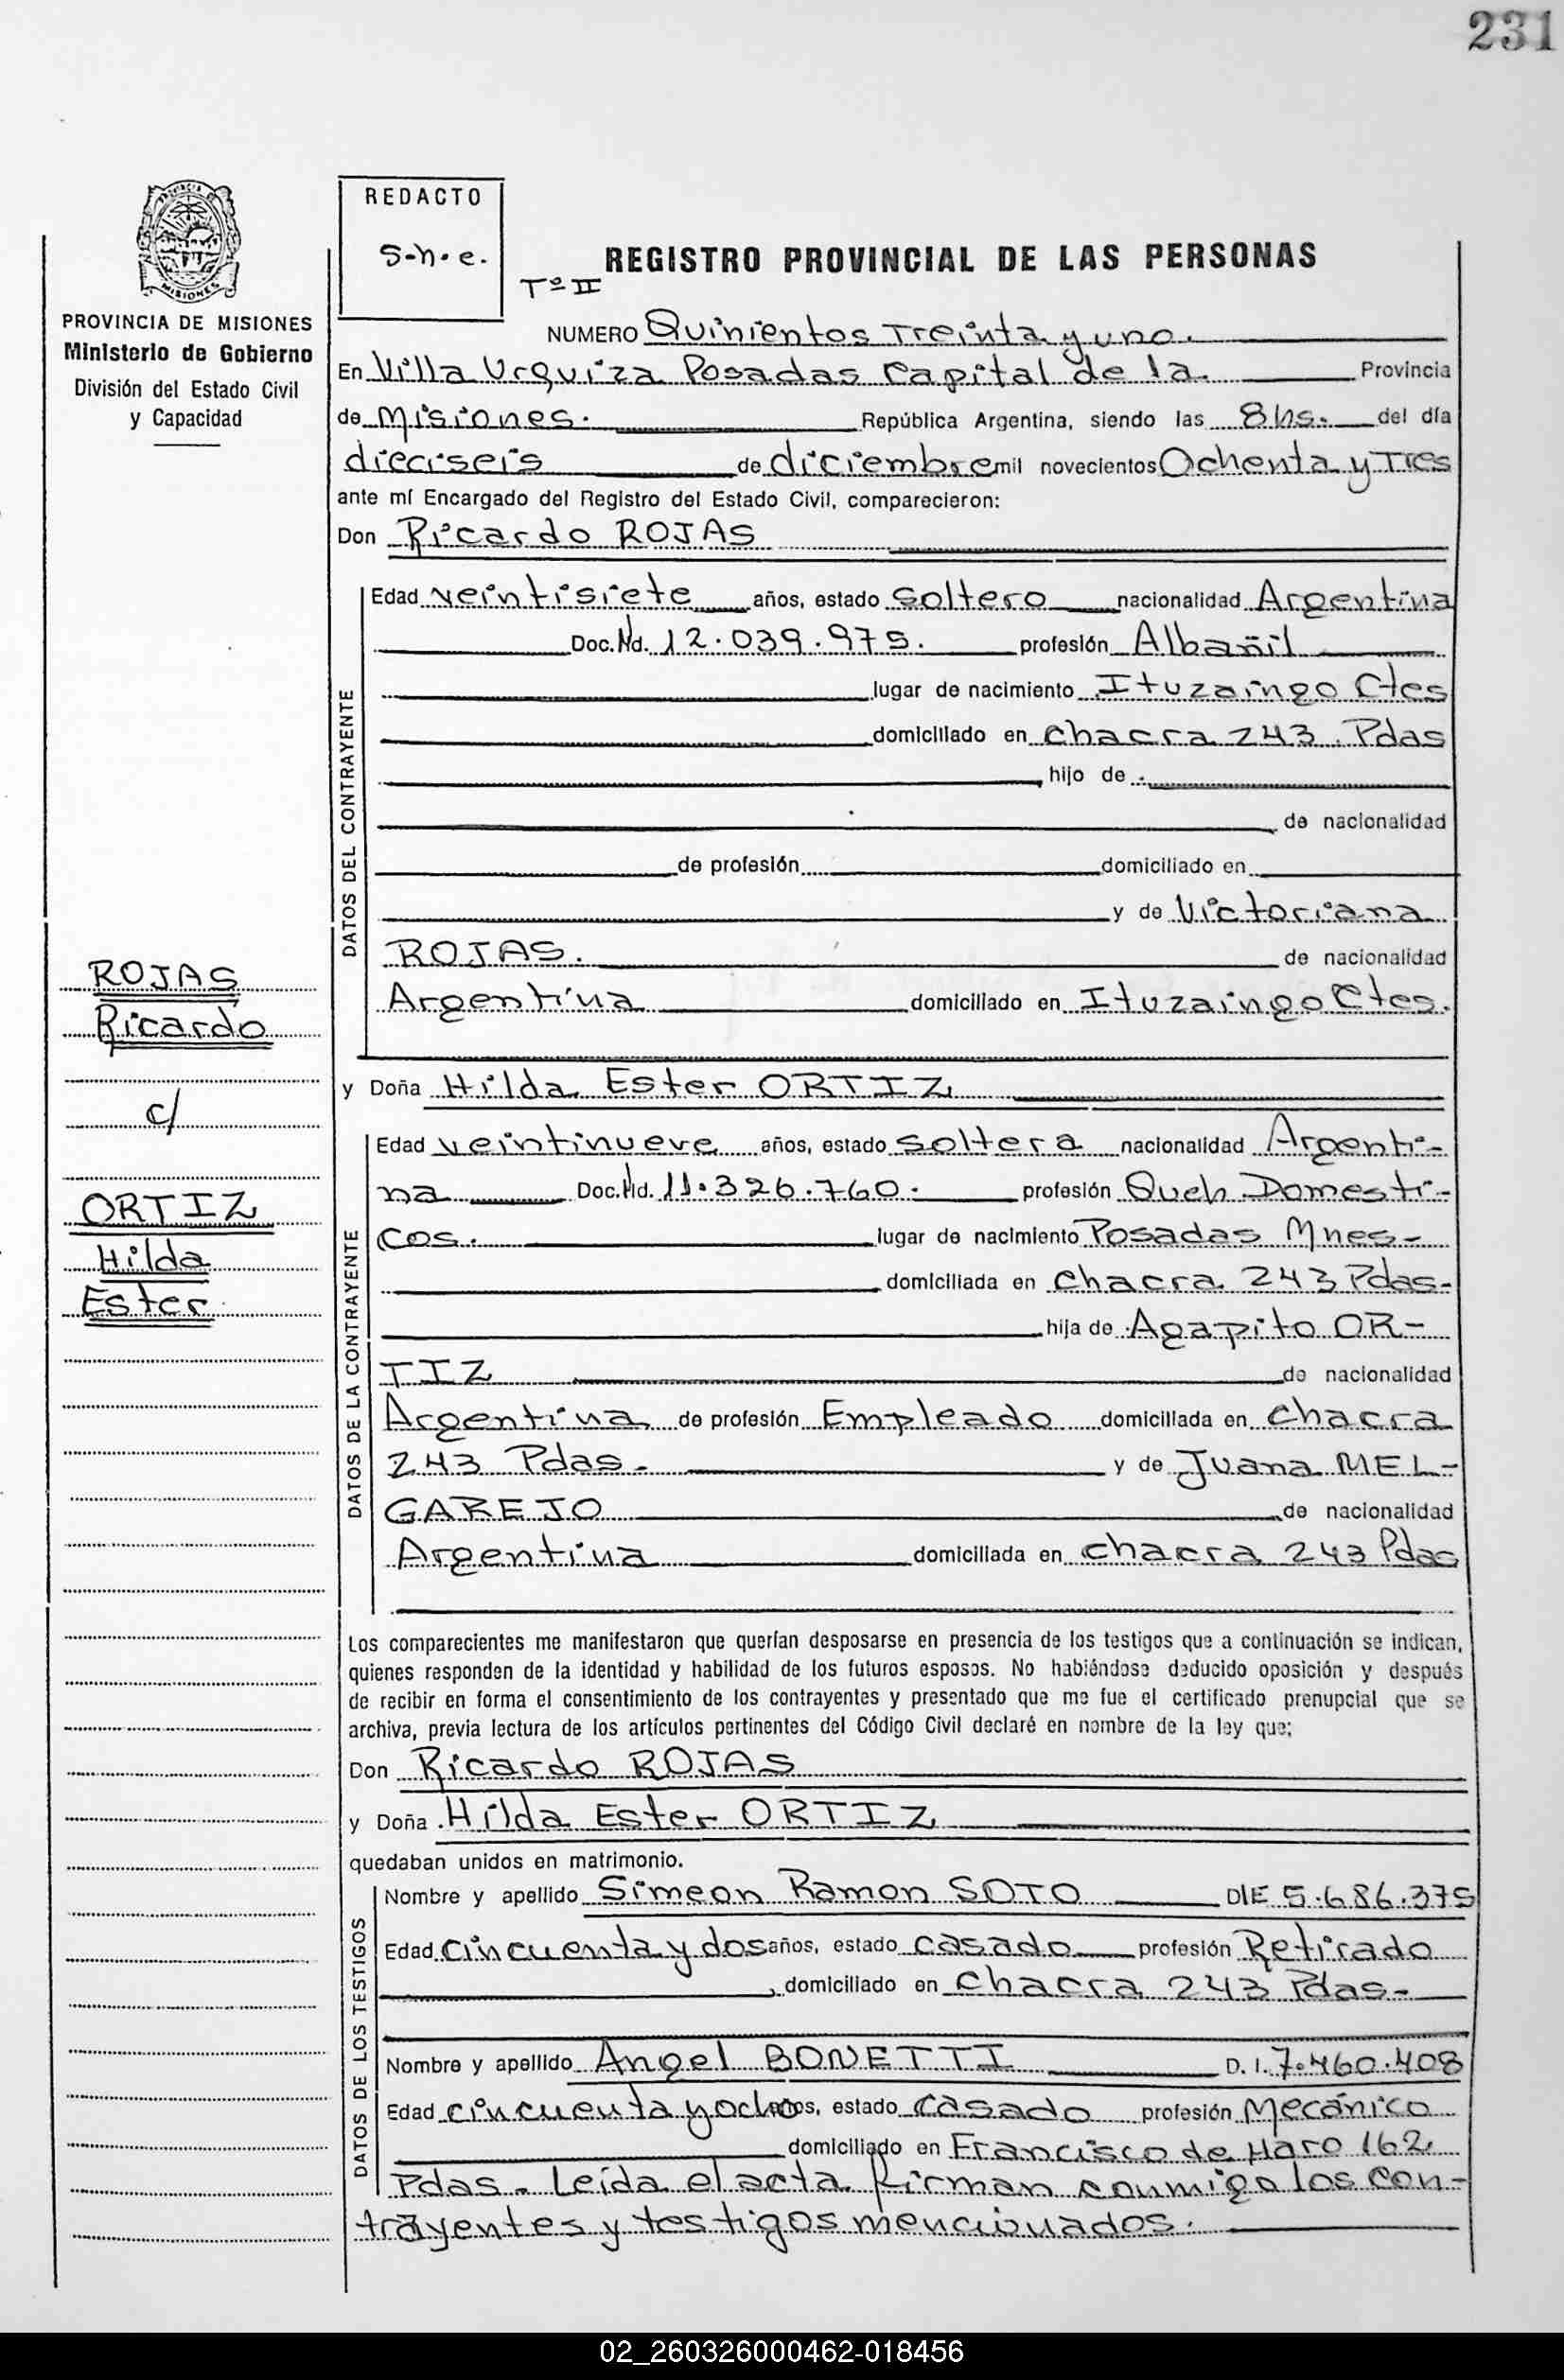 231
REDACTO
S-n.e.
Tº II
REGISTRO PROVINCIAL DE LAS PERSONAS
PROVINCIA DE MISIONES
Ministerio de Gobierno
División del Estado Civil
y Capacidad
MISIONES
NUMERO Quinientos Treinta y uno.
En Villa Urquiza Posadas Capital de la. Provincia
de Misiones. República Argentina, siendo las 8 hs. del día
dieciseis de diciembre mil novecientos Ochenta y Tres
ante mí Encargado del Registro del Estado Civil, comparecieron:
Don Ricardo ROJAS
DATOS DEL CONTRAYENTE
Edad veintisiete años, estado soltero nacionalidad Argentina
Doc. Nd. 12.039.975. profesión Albañil
lugar de nacimiento Ituzaingo Ctes
domiciliado en chacra 243. Pdas
hijo de
de nacionalidad
de profesión domiciliado en
y de Victoriana
ROJAS. de nacionalidad
Argentina domiciliado en Ituzaingo Ctes.
ROJAS
Ricardo
c/
ORTIZ
Hilda
Ester
y Doña Hilda Ester ORTIZ
DATOS DE LA CONTRAYENTE
Edad veintinueve años, estado soltera nacionalidad Argenti-
na Doc. Nd. 11.326.760. profesión Queh Domesti-
cos. lugar de nacimiento Posadas Mnes-
domiciliada en chacra 243 Pdas-
hija de Agapito OR-
TIZ de nacionalidad
Argentina de profesión Empleado domiciliada en chacra
243 Pdas- y de Juana MEL-
GAREJO de nacionalidad
Argentina domiciliada en chacra 243 Pdas
Los comparecientes me manifestaron que querían desposarse en presencia de los testigos que a continuación se indican,
quienes responden de la identidad y habilidad de los futuros esposos. No habiéndose deducido oposición y después
de recibir en forma el consentimiento de los contrayentes y presentado que me fue el certificado prenupcial que se
archiva, previa lectura de los artículos pertinentes del Código Civil declaré en nombre de la ley que;
Don Ricardo ROJAS
y Doña Hilda Ester ORTIZ
quedaban unidos en matrimonio.
DATOS DE LOS TESTIGOS
Nombre y apellido Simeon Ramon SOTO DIE 5.686.375
Edad cincuenta y dos años, estado casado profesión Retirado
domiciliado en chacra 243 Pdas-
Nombre y apellido Angel BONETTI D. I. 7.460.408
Edad cincuenta y ocho años, estado casado profesión Mecánico
domiciliado en Francisco de Haro 162
Pdas. Leida el acta firman conmigo los con-
trayentes y testigos mencionados.
02_260326000462-018456